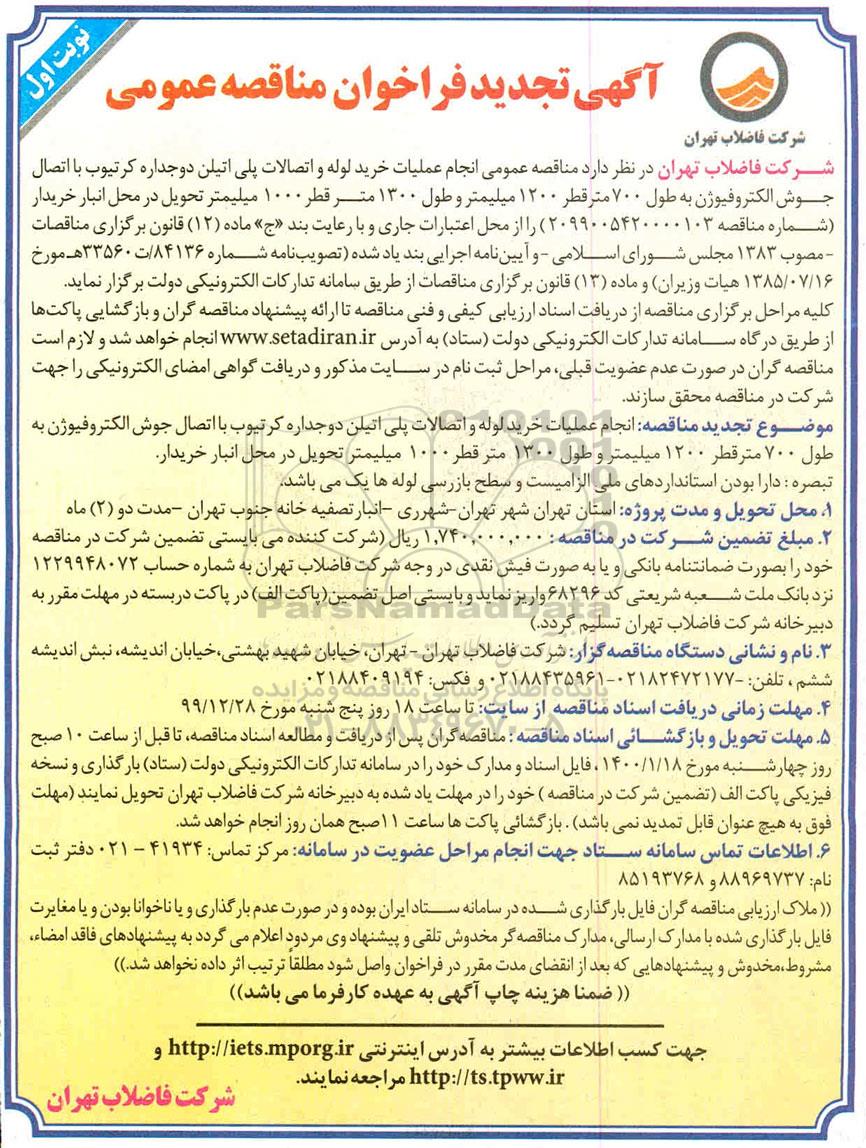 نوبت اول
شرکت فاضلاب تهران
آگهی تجدید فراخوان مناقصه عمومی
شرکت فاضلاب تهران در نظر دارد مناقصه عمومی انجام عملیات خرید لوله و اتصالات پلی اتیلن دوجداره کرتیوب با اتصال
جوش الکتروفیوژن به طول ۷۰۰ مترقطر ۱۲۰۰ میلیمتر و طول ۱۳۰۰ متر قطر ۱۰۰۰ میلیمتر تحویل در محل انبار خریدار
(شماره مناقصه ۲۰۹۹۰۰۵۴۲۰۰۰۰۱۰۳) را از محل اعتبارات جاری و با رعایت بند «ج» ماده (۱۲) قانون برگزاری مناقصات
-مصوب ۱۳۸۳ مجلس شورای اسلامی -و آیین‌نامه اجرایی بند یاد شده (تصویب‌نامه شماره ۸۴۱۳۶/ت۳۳۵۶۰هـ‌مورخ
۱۳۸۵/۰۷/۱۶ هیات وزیران) و ماده (۱۳) قانون برگزاری مناقصات از طریق سامانه تدارکات الکترونیکی دولت برگزار نماید.
کلیه مراحل برگزاری مناقصه از دریافت اسناد ارزیابی کیفی و فنی مناقصه تا ارائه پیشنهاد مناقصه گران و بازگشایی پاکت‌ها
از طریق درگاه سامانه تدارکات الکترونیکی دولت (ستاد) به آدرس www.setadiran.ir انجام خواهد شد و لازم است
مناقصه گران در صورت عدم عضویت قبلی، مراحل ثبت نام در سایت مذکور و دریافت گواهی امضای الکترونیکی را جهت
شرکت در مناقصه محقق سازند.
موضوع تجدید مناقصه: انجام عملیات خرید لوله و اتصالات پلی اتیلن دوجداره کرتیوب با اتصال جوش الکتروفیوژن به
طول ۷۰۰ مترقطر ۱۲۰۰ میلیمتر و طول ۱۳۰۰ متر قطر ۱۰۰۰ میلیمتر تحویل در محل انبار خریدار.
تبصره : دارا بودن استانداردهای ملی الزامیست و سطح بازرسی لوله ها یک می باشد.
۱. محل تحویل و مدت پروژه: استان تهران شهر تهران-شهرری -انبارتصفیه خانه جنوب تهران -مدت دو (۲) ماه
۲. مبلغ تضمین شرکت در مناقصه : ۱,۷۴۰,۰۰۰,۰۰۰ ریال (شرکت کننده می بایستی تضمین شرکت در مناقصه
خود را بصورت ضمانتنامه بانکی و یا به صورت فیش نقدی در وجه شرکت فاضلاب تهران به شماره حساب ۱۲۲۹۹۴۸۰۷۲
نزد بانک ملت شعبه شریعتی کد ۶۸۲۹۶واریز نماید و بایستی اصل تضمین(پاکت الف) در پاکت دربسته در مهلت مقرر به
دبیرخانه شرکت فاضلاب تهران تسلیم گردد.)
ParsNamadData
۳. نام و نشانی دستگاه مناقصه‌گزار: شرکت فاضلاب تهران - تهران، خیابان شهید بهشتی،خیابان اندیشه، نبش اندیشه
ششم ، تلفن: ۰۲۱۸۲۴۷۲۱۷۷-۰۲۱۸۸۴۳۵۹۶۱ و فکس: ۰۲۱۸۸۴۰۹۱۹۴
پایگاه اطلاع رسانی مناقصه و مزایده
۴. مهلت زمانی دریافت اسناد مناقصه از سایت: تا ساعت ۱۸ روز پنج شنبه مورخ ۹۹/۱۲/۲۸
۰۲۱-۸۸۳۴۹۶۷۰-۵
۵. مهلت تحویل و بازگشائی اسناد مناقصه : مناقصه گران پس از دریافت و مطالعه اسناد مناقصه، تا قبل از ساعت ۱۰ صبح
روز چهارشنبه مورخ ۱۴۰۰/۱/۱۸، فایل اسناد و مدارک خود را در سامانه تدارکات الکترونیکی دولت (ستاد) بارگذاری و نسخه
فیزیکی پاکت الف (تضمین شرکت در مناقصه ) خود را در مهلت یاد شده به دبیرخانه شرکت فاضلاب تهران تحویل نمایند (مهلت
فوق به هیچ عنوان قابل تمدید نمی باشد) . بازگشائی پاکت ها ساعت ۱۱صبح همان روز انجام خواهد شد.
۶. اطلاعات تماس سامانه ستاد جهت انجام مراحل عضویت در سامانه: مرکز تماس: ۴۱۹۳۴ - ۰۲۱ دفتر ثبت
نام: ۸۸۹۶۹۷۳۷ و ۸۵۱۹۳۷۶۸
(( ملاک ارزیابی مناقصه گران فایل بارگذاری شده در سامانه ستاد ایران بوده و در صورت عدم بارگذاری و یا ناخوانا بودن و یا مغایرت
فایل بارگذاری شده با مدارک ارسالی، مدارک مناقصه‌گر مخدوش تلقی و پیشنهاد وی مردود اعلام می گردد به پیشنهادهای فاقد امضاء،
مشروط،مخدوش و پیشنهادهایی که بعد از انقضای مدت مقرر در فراخوان واصل شود مطلقاً ترتیب اثر داده نخواهد شد.))
(( ضمنا هزینه چاپ آگهی به عهده کارفرما می باشد))
جهت کسب اطلاعات بیشتر به آدرس اینترنتی http://iets.mporg.ir و
http://ts.tpww.ir مراجعه نمایند.
شرکت فاضلاب تهران